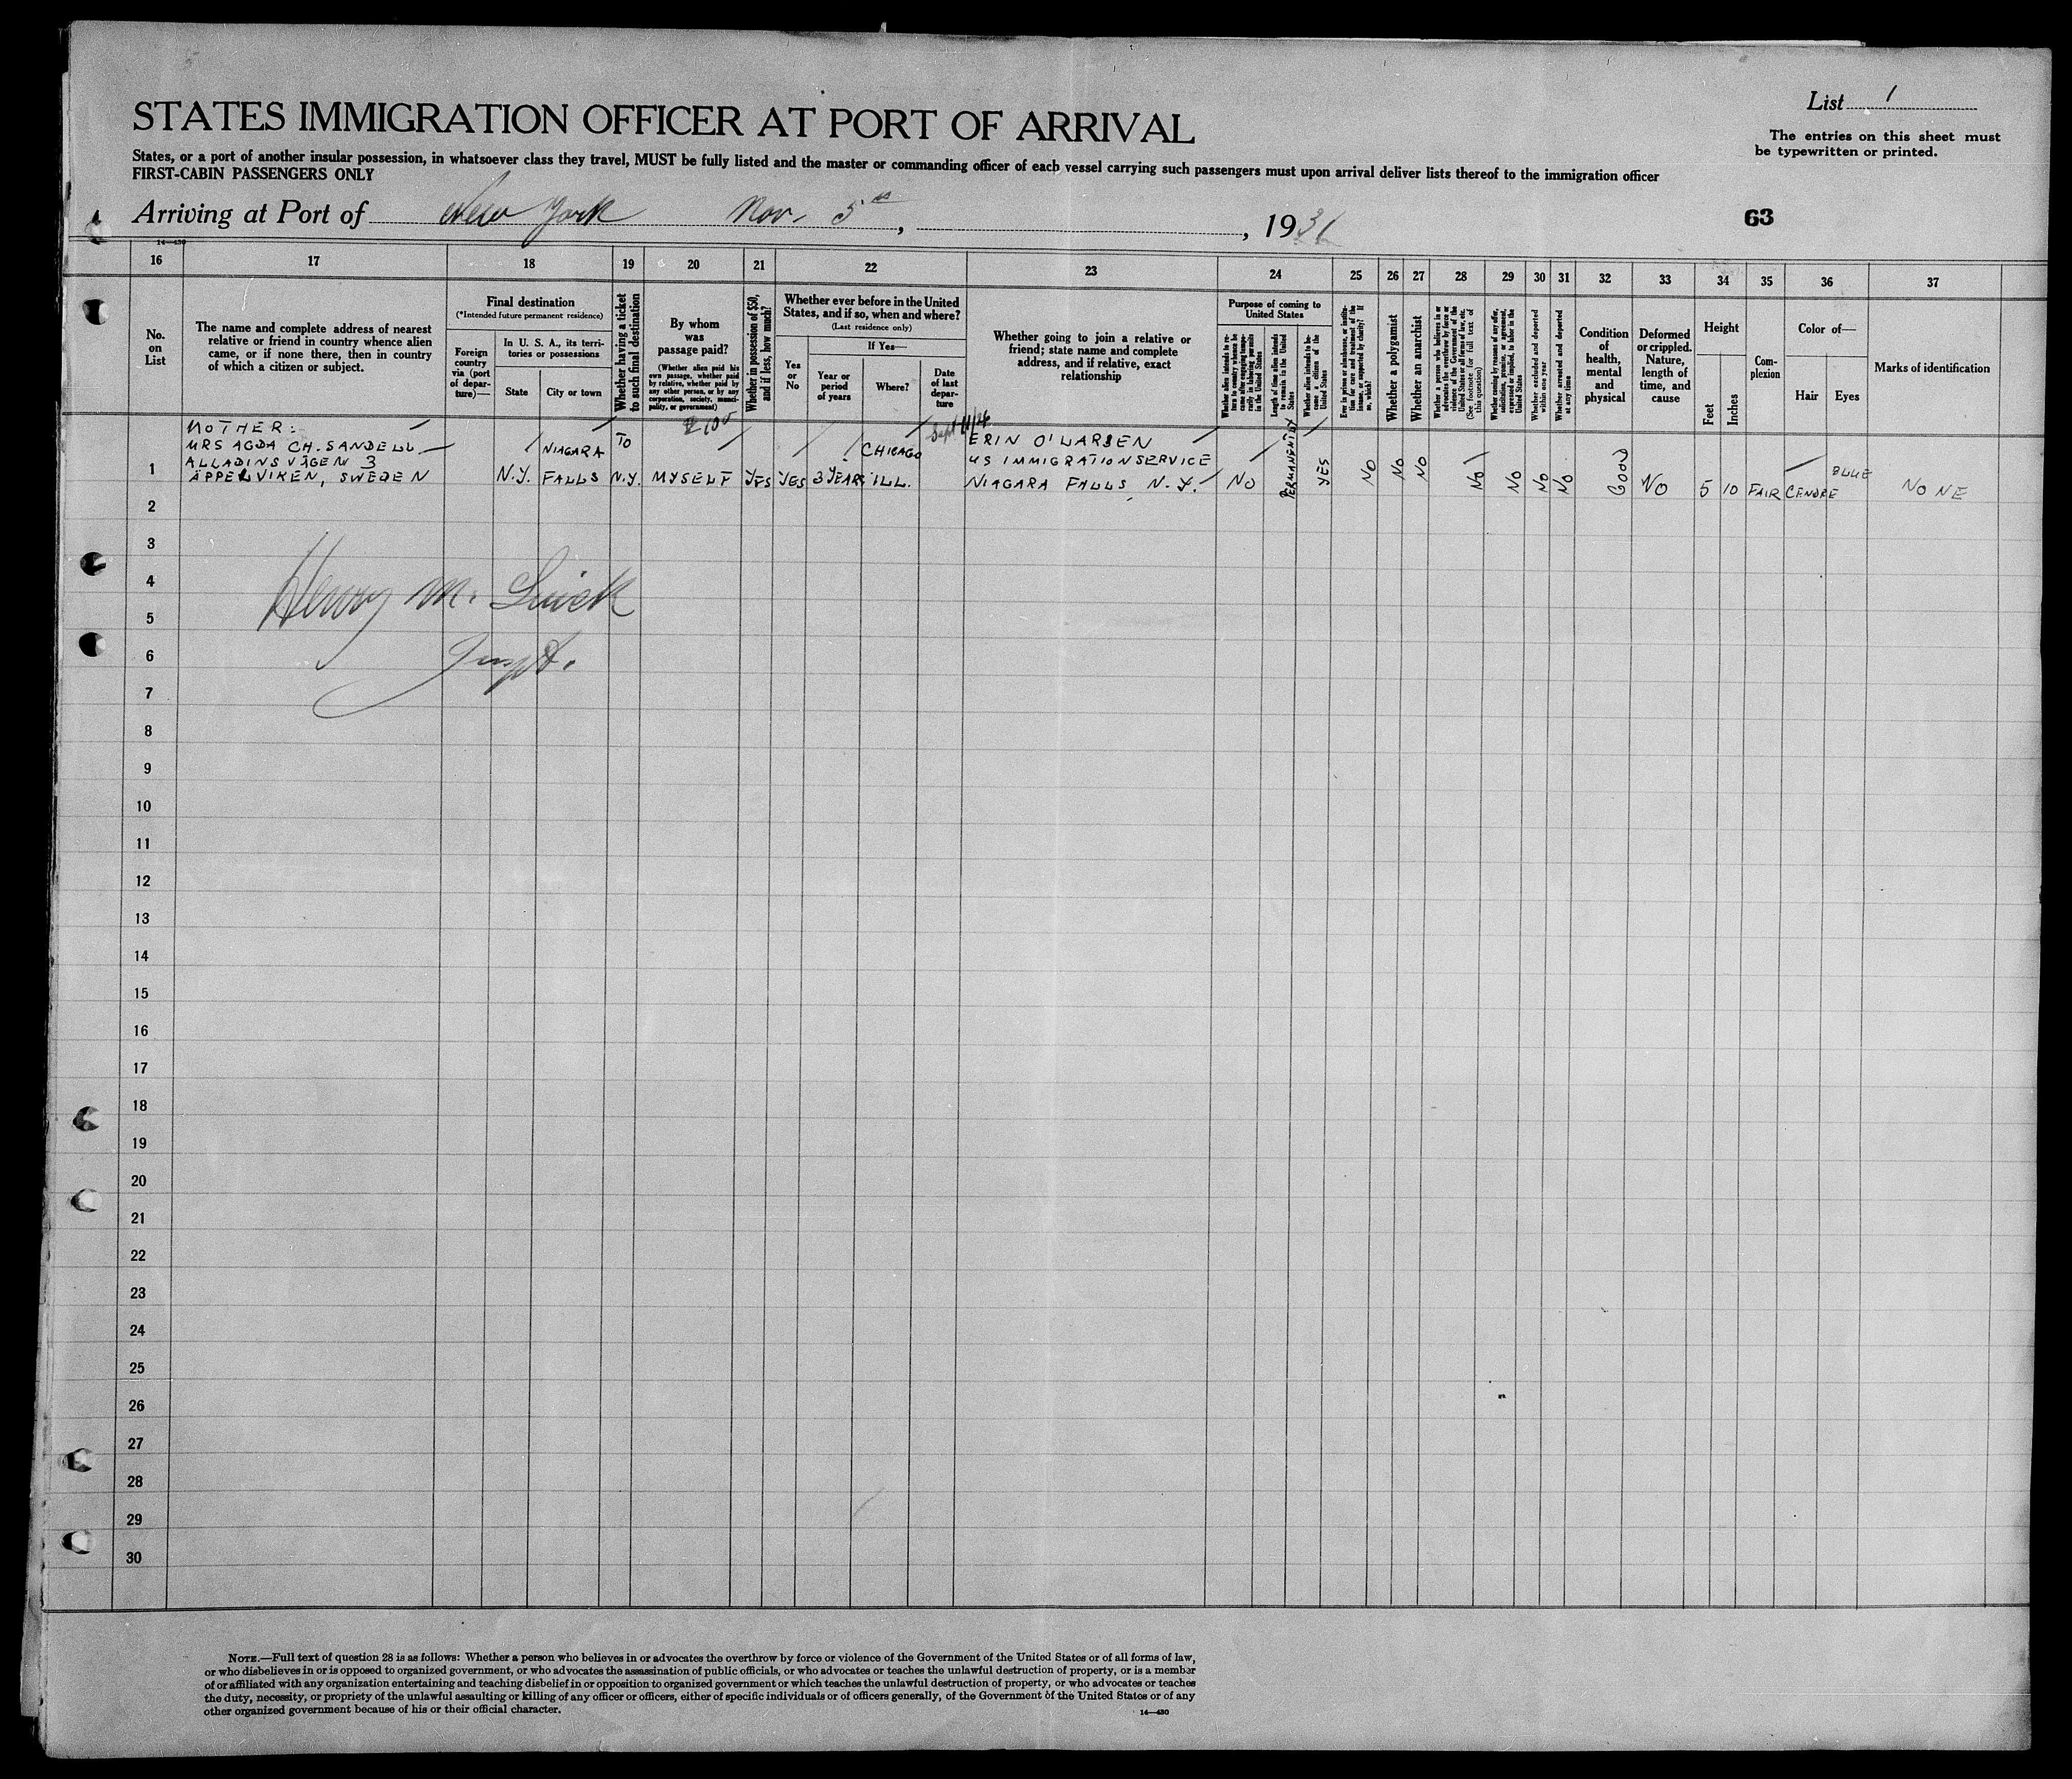 List 1
The entries on this sheet must
be typewritten or printed.
STATES IMMIGRATION OFFICER AT PORT OF ARRIVAL
States, or a port of another insular possession, in whatsoever class they travel, MUST be fully listed and the master or commanding officer of each vessel carrying such passengers must upon arrival deliver lists thereof to the immigration officer
FIRST-CABIN PASSENGERS ONLY
Arriving at Port of New York Nov. 5th, , 1931
63
14—430
16 17 18 19 20 21 22 23 24 25 26 27 28 29 30 31 32 33 34 35 36 37
No.
on
List
The name and complete address of nearest
relative or friend in country whence alien
came, or if none there, then in country
of which a citizen or subject.
Final destination
(*Intended future permanent residence)
Foreign
country
via (port
of depar-
ture)—
In U. S. A., its terri-
tories or possessions
State
City or town
Whether having a ticket
to such final destination
By whom
was
passage paid?
(Whether alien paid his
own passage, whether paid
by relative, whether paid by
any other person, or by any
corporation, society, munici-
pality, or government)
Whether in possession of $50,
and if less, how much?
Whether ever before in the United
States, and if so, when and where?
(Last residence only)
Yes
or
No
If Yes—
Year or
period
of years
Where?
Date
of last
depar-
ture
Whether going to join a relative or
friend; state name and complete
address, and if relative, exact
relationship
Purpose of coming to
United States
Whether alien intends to re-
turn to country whence he
came after engaging tempo-
rarily in laboring pursuits
in the United States
Length of time alien intends
to remain in the United
States
Whether alien intends to be-
come a citizen of the
United States
Ever in prison or almshouse, or institu-
tion for care and treatment of the
insane, or supported by charity? If
so, which?
Whether a polygamist
Whether an anarchist
Whether a person who believes in or
advocates the overthrow by force or
violence of the Government of the
United States or all forms of law, etc.
(See footnote for full text of
this question)
Whether coming by reasons of any offer,
solicitation, promise, or agreement,
expressed or implied, to labor in the
United States
Whether excluded and deported
within one year
Whether arrested and deported
at any time
Condition
of
health,
mental
and
physical
Deformed
or crippled.
Nature,
length of
time, and
cause
Height
Feet
Inches
Com-
plexion
Color of—
Hair
Eyes
Marks of identification
MOTHER:
MRS AGDA CH. SANDELL
ALLADINSVÄGEN 3
ÄPPELVIKEN, SWEDEN
1
N.Y.
NIAGARA
FALLS
TO
N.Y.
MYSELF
YES
YES
3 YEARS
CHICAGO
ILL.
Sept
ERIN O'LARSEN
US IMMIGRATION SERVICE
NIAGARA FALLS, N.Y.
NO
PERMANENTLY
YES
NO
NO
NO
NO
NO
NO
NO
GOOD
NO
5
10
FAIR
CENDRE
BLUE
NONE
2
3
4
5
6
7
8
9
10
11
12
13
14
15
16
17
18
19
20
21
22
23
24
25
26
27
28
29
30
Henry M.
NOTE.—Full text of question 28 is as follows: Whether a person who believes in or advocates the overthrow by force or violence of the Government of the United States or of all forms of law,
or who disbelieves in or is opposed to organized government, or who advocates the assassination of public officials, or who advocates or teaches the unlawful destruction of property, or is a member
of or affiliated with any organization entertaining and teaching disbelief in or opposition to organized government or which teaches the unlawful destruction of property, or who advocates or teaches
the duty, necessity, or propriety of the unlawful assaulting or killing of any officer or officers, either of specific individuals or of officers generally, of the Government of the United States or of any
other organized government because of his or their official character.
14—430